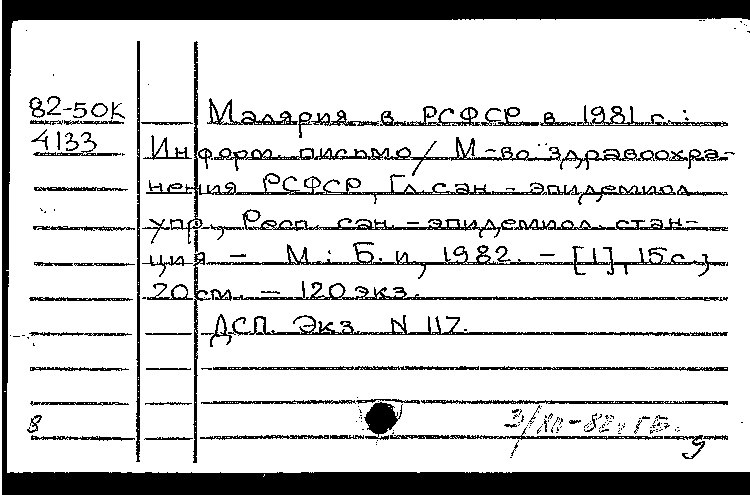 82-50К Малярия в РСФСР в 1981 г.:
4133 Информ. письмо / М-во здравоохра-
нения РСФСР, Гл. сан.-эпидемиол.
упр., Респ. сан.-эпидемиол. стан-
ция – М.: Б. и., 1982. – [1], 15 с.;
20 см. – 120 экз.
ДСП. Экз. N 117.
8
9